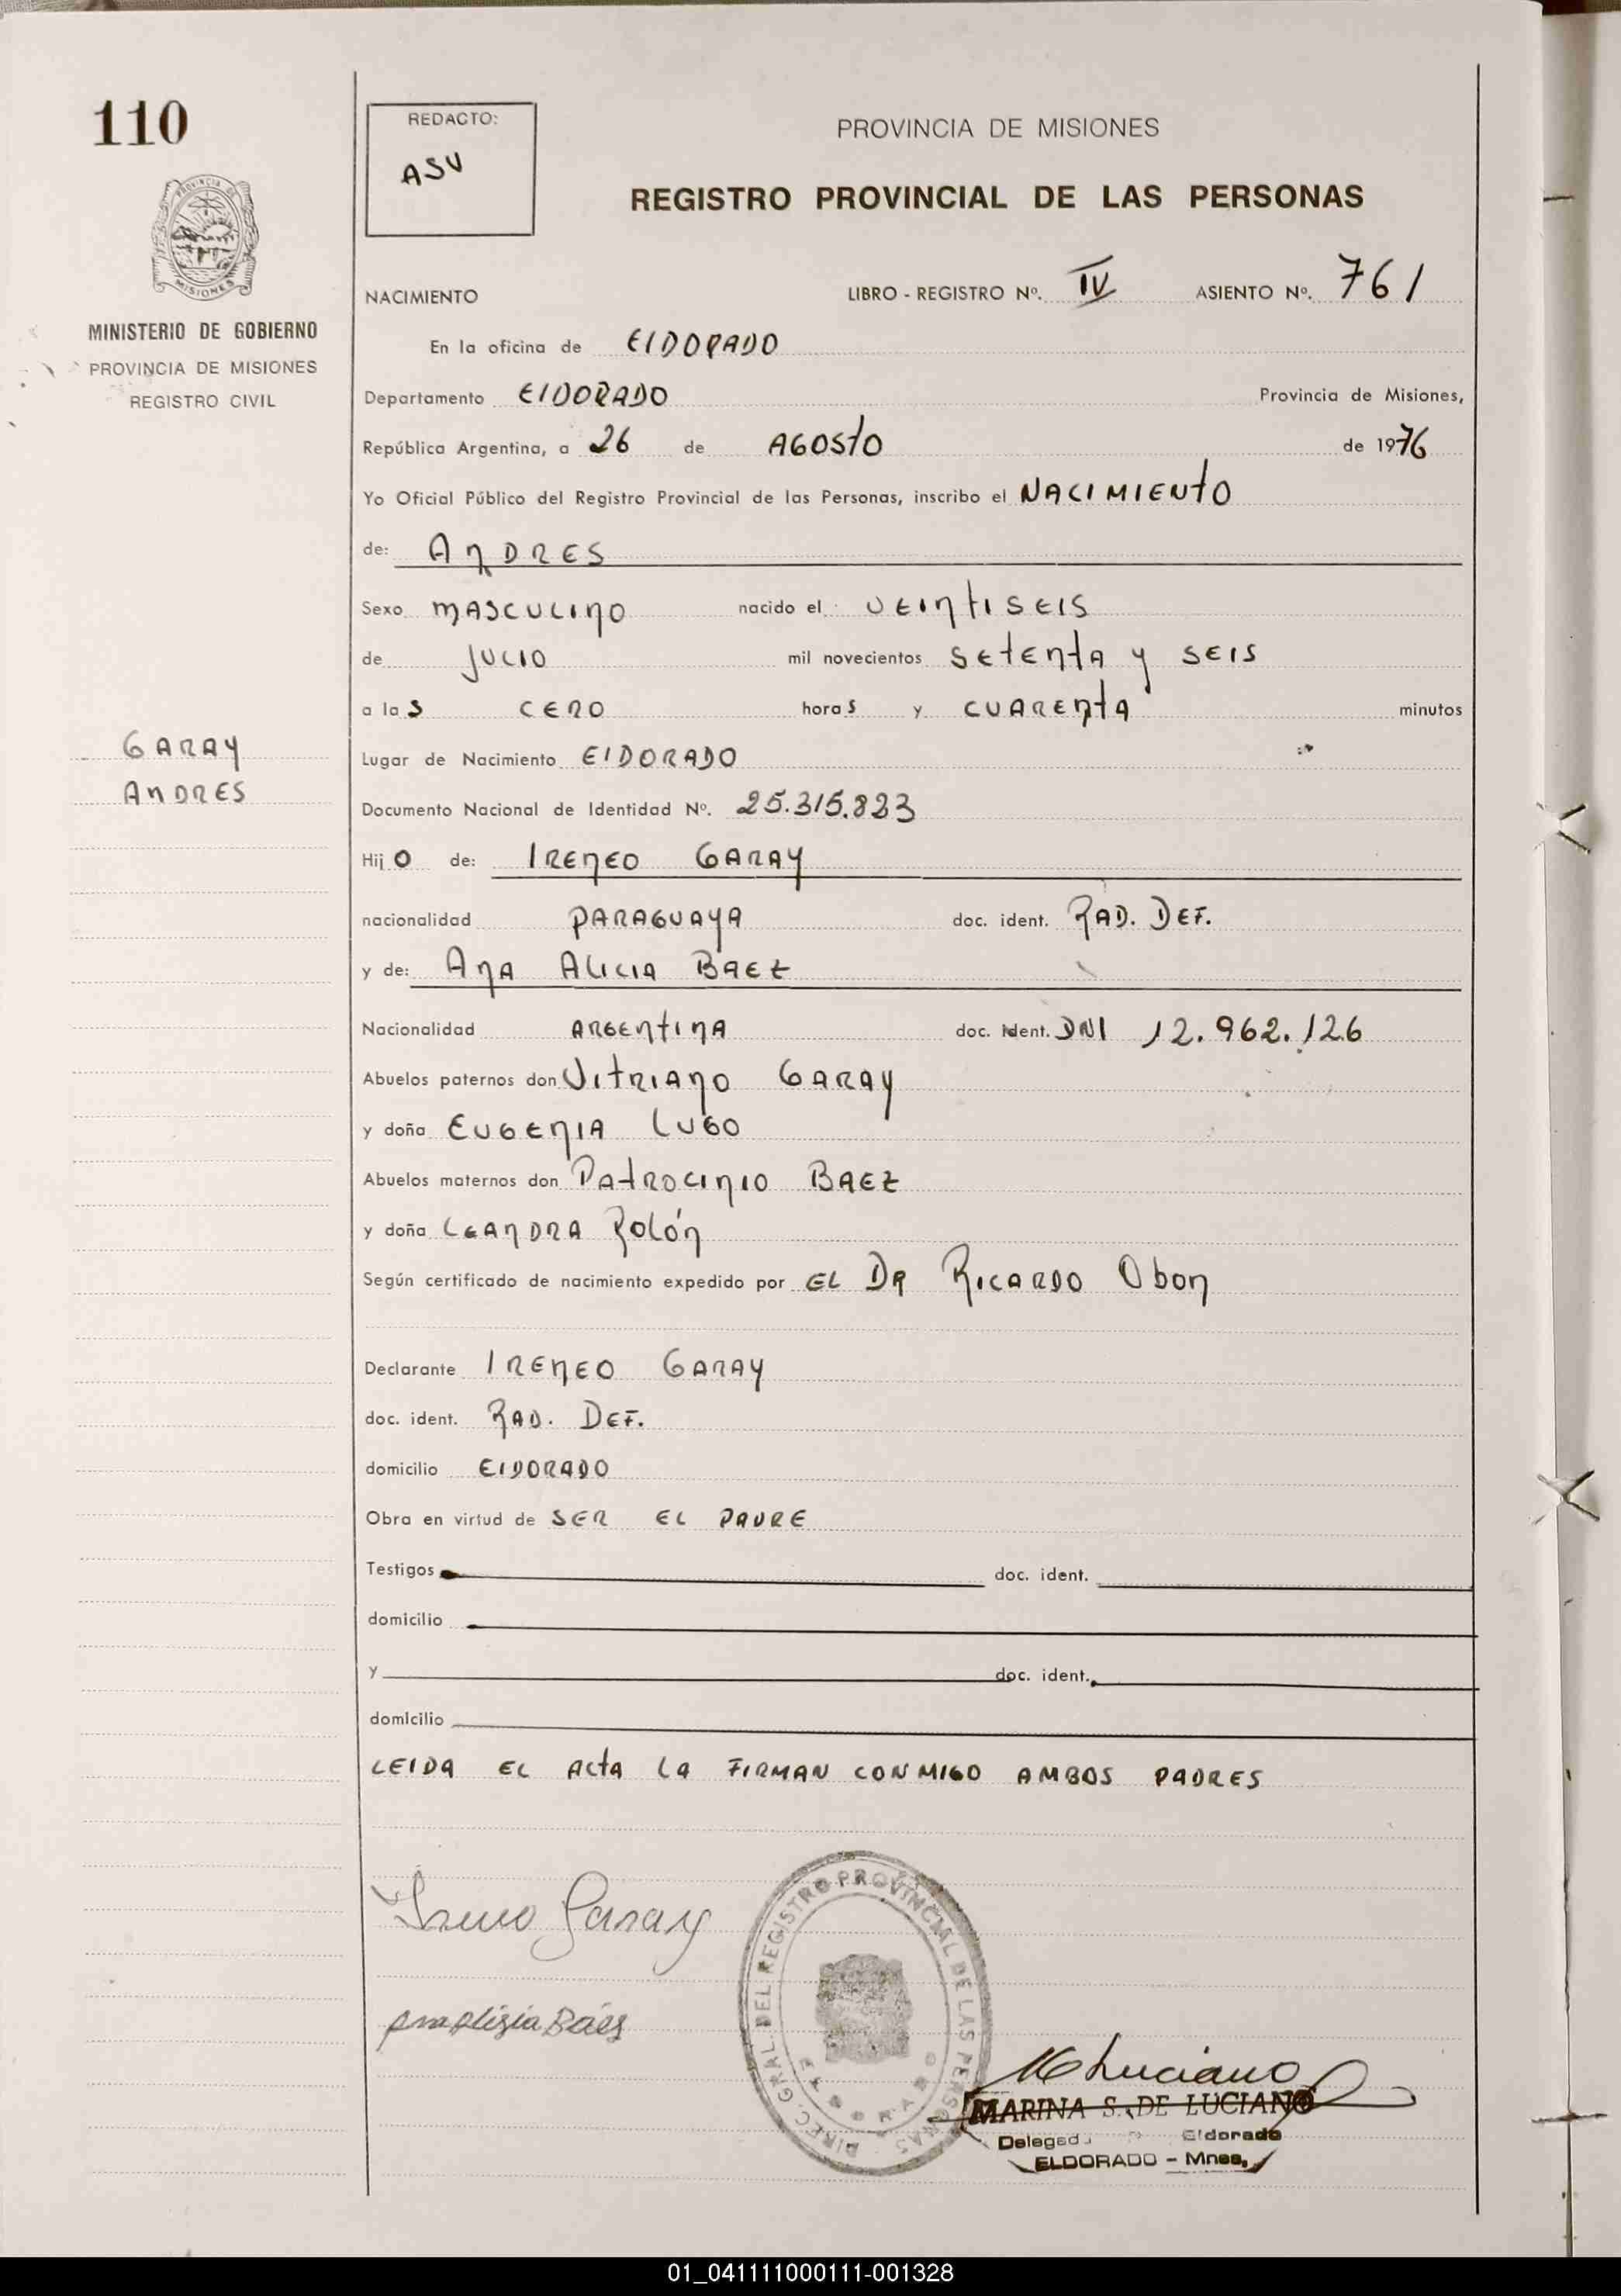 110
REDACTO:
ASV
PROVINCIA DE MISIONES
REGISTRO PROVINCIAL DE LAS PERSONAS
PROVINCIA DE
MISIONES
MINISTERIO DE GOBIERNO
PROVINCIA DE MISIONES
REGISTRO CIVIL
NACIMIENTO LIBRO - REGISTRO Nº. IV ASIENTO Nº. 761
En la oficina de ElDORADO
Departamento ElDORADO Provincia de Misiones,
República Argentina, a 26 de AGOSTO de 1976
Yo Oficial Público del Registro Provincial de las Personas, inscribo el NACIMIENTO
de: ANDRES
Sexo MASCULINO nacido el VEINTISEIS
de JULIO mil novecientos SETENTA y SEIS
a las CERO horas y CUARENTA minutos
GARAY
ANDRES
Lugar de Nacimiento ElDORADO
Documento Nacional de Identidad Nº. 25.315.823
Hijo de: IRENEO GARAY
nacionalidad PARAGUAYA doc. ident. RAD. DEF.
y de: ANA ALICIA BAEZ
Nacionalidad ARGENTINA doc. ident. DNI 12.962.126
Abuelos paternos don VITRIANO GARAY
y doña EUGENIA LUGO
Abuelos maternos don PATROCINIO BAEZ
y doña LEANDRA ROLÓN
Según certificado de nacimiento expedido por EL DR RICARDO Obon
Declarante IRENEO GARAY
doc. ident. RAD. DEF.
domicilio ElDORADO
Obra en virtud de SER EL PADRE
Testigos doc. ident.
domicilio
y doc. ident.
domicilio
LEIDA EL ACTA LA FIRMAN CONMIGO AMBOS PADRES
Ireneo Garay
Ana Alisia Báes
DIREC. GRAL DEL REGISTRO PROVINCIAL DE LAS PERSONAS
ELDORADO
Luciano
MARINA S. DE LUCIANO
Delegad Eldorado
ELDORADO - Mnes.
01_041111000111-001328